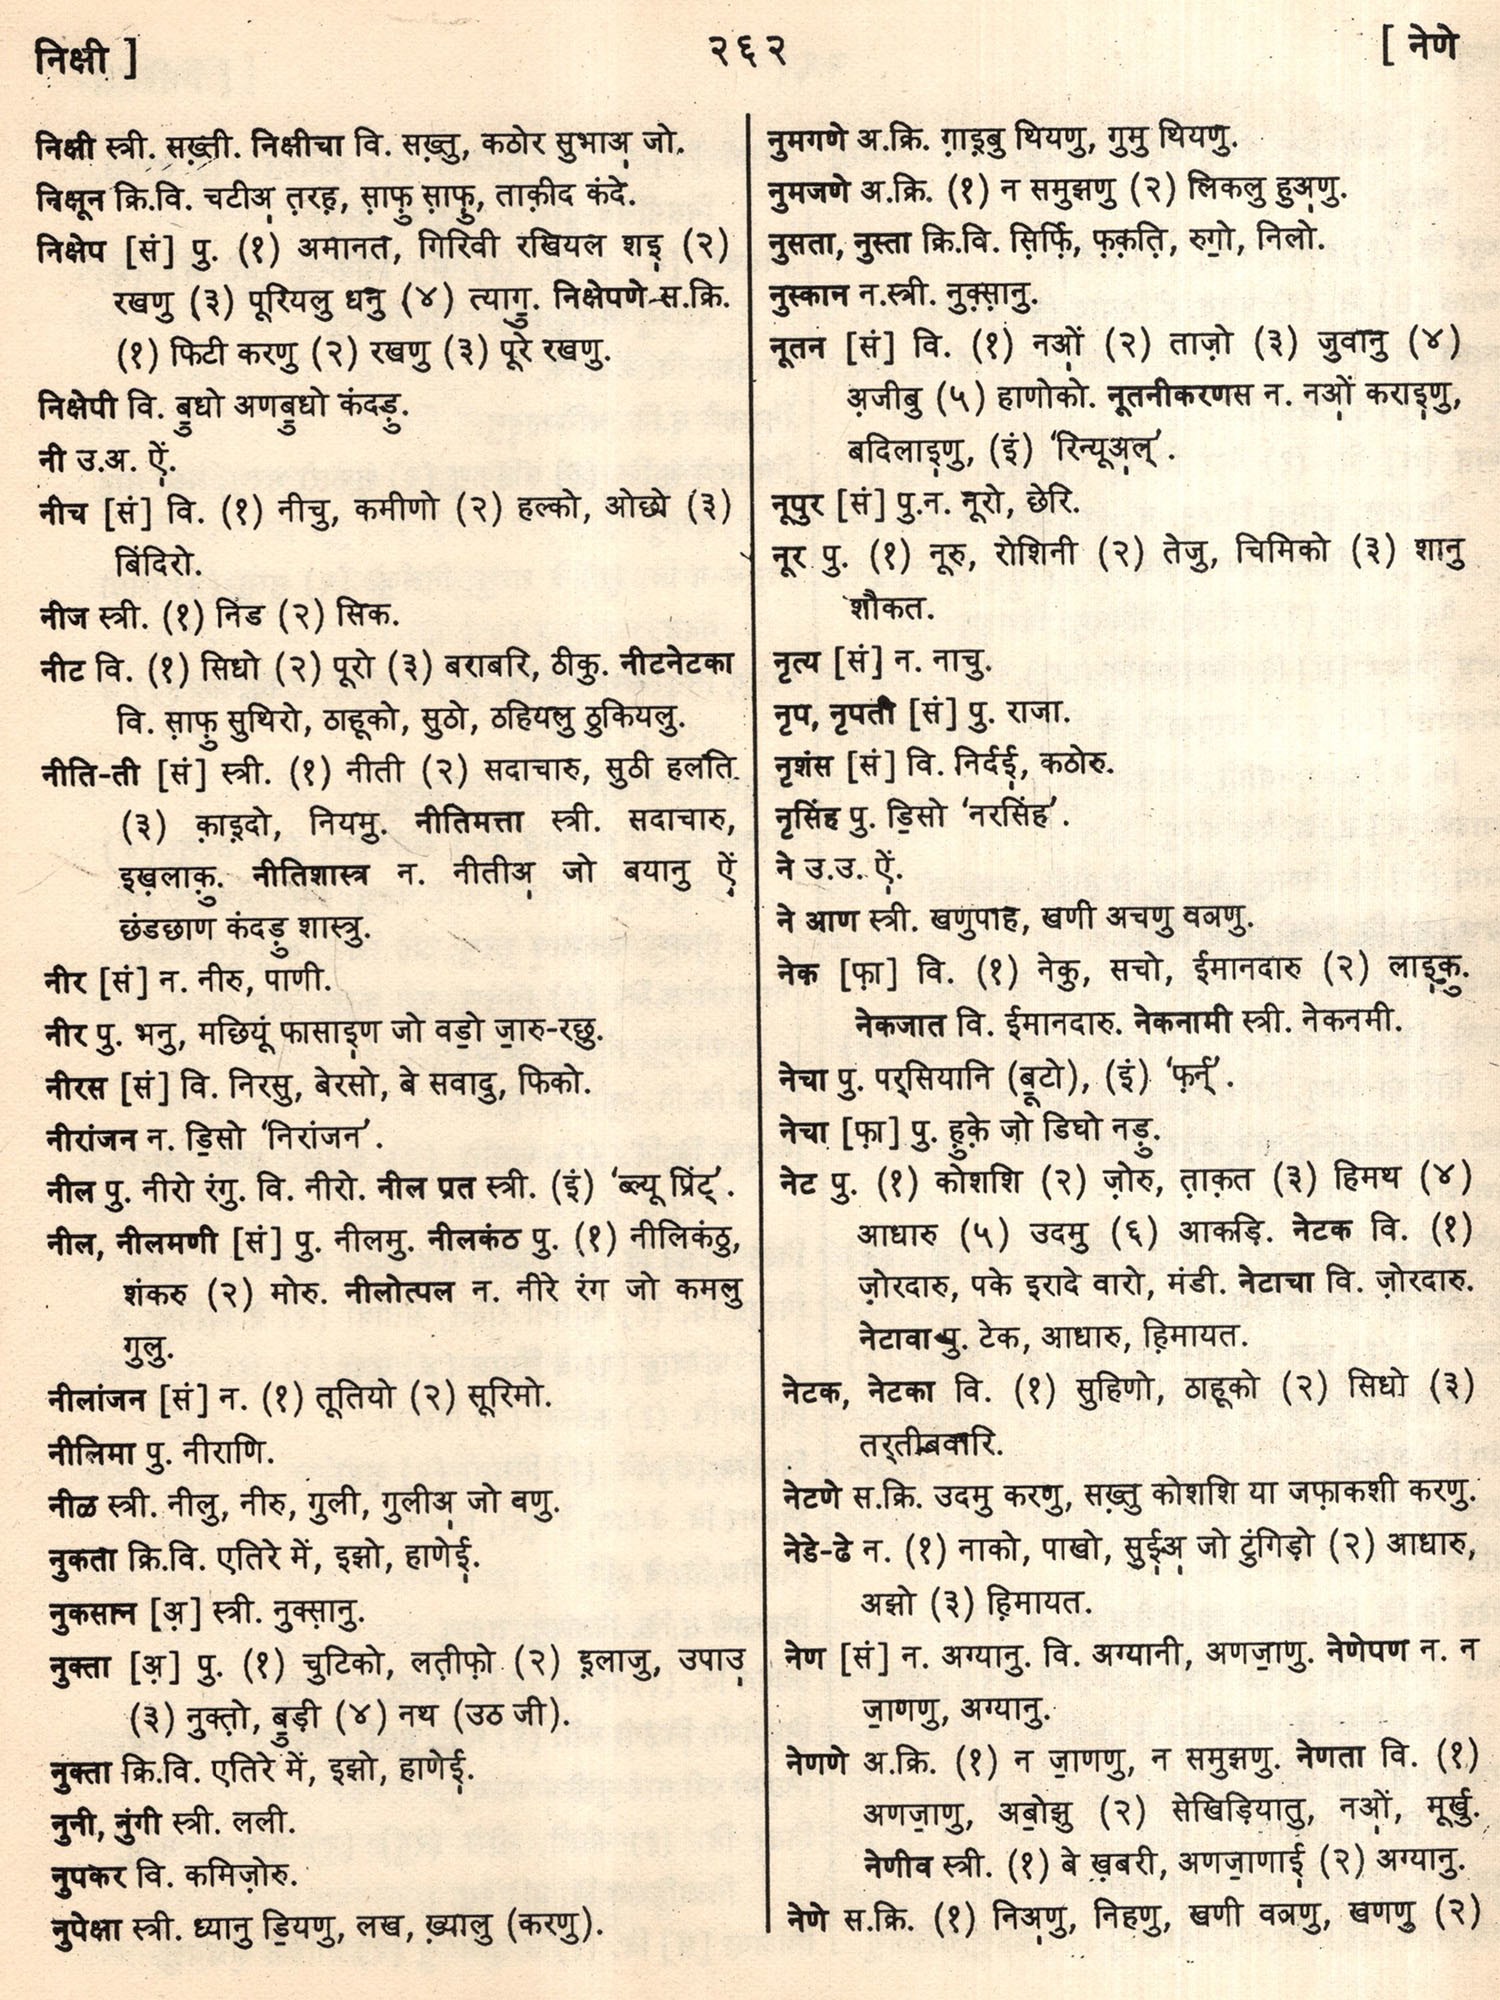 निक्षी ]
२६२
[ नेणे
निक्षी स्त्री. सख़्ती. निक्षीचा वि. सख़्तु, कठोर सुभाअ॒ जो.
निक्षून क्रि.वि. चटीअ॒ त़रह़, स़ाफ़ु स़ाफ़ु, ताक़ीद कंदे.
निक्षेप [सं] पु. (१) अमानत, गिरिवी रखियल शइ॒ (२)
रखणु (३) पूरियलु धनु (४) त्यागु॒. निक्षेपणे स.क्रि.
(१) फिटी करणु (२) रखणु (३) पूरे रखणु.
निक्षेपी वि. बु॒धो अणबु॒धो कंदड़ु.
नी उ.अ. ऐं.
नीच [सं] वि. (१) नीचु, कमीणो (२) हल्को, ओछो (३)
बिंदिरो.
नीज स्त्री. (१) निंड (२) सिक.
नीट वि. (१) सिधो (२) पूरो (३) बराबरि, ठीकु. नीटनेटका
वि. स़ाफ़ु सुथिरो, ठाहूको, सुठो, ठहियलु ठुकियलु.
नीति-ती [सं] स्त्री. (१) नीती (२) सदाचारु, सुठी हलति
(३) क़ाइ़दो, नियमु. नीतिमत्ता स्त्री. सदाचारु,
इख़लाक़ु. नीतिशास्त्र न. नीतीअ॒ जो बयानु ऐं
छंडछाण कंदड़ु शास्त्रु.
नीर [सं] न. नीरु, पाणी.
नीर पु. भनु, मछियूं फासाइ॒ण जो वडो॒ जा॒रु-रछु.
नीरस [सं] वि. निरसु, बेरसो, बे सवादु, फिको.
नीरांजन न. डि॒सो ‘निरांजन’.
नील पु. नीरो रंगु. वि. नीरो. नील प्रत स्त्री. (इं) ‘ब्ल्यू प्रिंट्’.
नील, नीलमणी [सं] पु. नीलमु. नीलकंठ पु. (१) नीलिकंठु,
शंकरु (२) मोरु. नीलोत्पल न. नीरे रंग जो कमलु
गुलु.
नीलांजन [सं] न. (१) तूतियो (२) सूरिमो.
नीलिमा पु. नीराणि.
नीळ स्त्री. नीलु, नीरु, गुली, गुलीअ॒ जो वणु.
नुकता क्रि.वि. एतिरे में, इझो, हाणेई॒.
नुकसान [अ़] स्त्री. नुक्स़ानु.
नुक्ता [अ़] पु. (१) चुटिको, लत़ीफ़ो (२) इ़लाजु, उपाउ॒
(३) नुक्त़ो, बु॒ड़ी (४) नथ (उठ जी).
नुक्ता क्रि.वि. एतिरे में, इझो, हाणेई॒.
नुनी, नुंगी स्त्री. लली.
नुपकर वि. कमिज़ोरु.
नुपेक्षा स्त्री. ध्यानु डि॒यणु, लख, ख़्यालु (करणु).
नुमगणे अ.क्रि. ग़ाइ़बु थियणु, गुमु थियणु.
नुमजणे अ.क्रि. (१) न समुझणु (२) लिकलु हुअ॒णु.
नुसता, नुस्ता क्रि.वि. स़िर्फ़ि, फ़क़त़ि, रुगो॒, निलो.
नुस्कान न.स्त्री. नुक़्स़ानु.
नूतन [सं] वि. (१) नओं॒ (२) ताज़ो (३) जुवानु (४)
अ़जीबु (५) हाणोको. नूतनीकरणस न. नओं॒ कराइ॒णु,
बदिलाइ॒णु, (इं) ‘रिन्यूअ॒ल्’.
नूपुर [सं] पु.न. नूरो, छेरि.
नूर पु. (१) नूरु, रोशिनी (२) तेजु, चिमिको (३) शानु
शौकत.
नृत्य [सं] न. नाचु.
नृप, नृपती [सं] पु. राजा.
नृशंस [सं] वि. निर्दई॒, कठोरु.
नृसिंह पु. डि॒सो ‘नरसिंह’.
ने उ.उ. ऐं.
ने आण स्त्री. खणुपाह, खणी अचणु वञणु.
नेक [फ़ा] वि. (१) नेकु, सचो, ईमानदारु (२) लाइ॒क़ु.
नेकजात वि. ईमानदारु. नेकनामी स्त्री. नेकनमी.
नेचा पु. पर्सियानि (बू॒टो), (इं) ‘फ़र्न्’.
नेचा [फ़ा] पु. हु़क़े जो डिघो नड़ु.
नेट पु. (१) कोशशि (२) ज़ोरु, त़ाक़त (३) हिमथ (४)
आधारु (५) उदमु (६) आकड़ि. नेटक वि. (१)
ज़ोरदारु, पके इरादे वारो, मंडी. नेटाचा वि. ज़ोरदारु.
नेटावा पु. टेक, आधारु, हि़मायत.
नेटक, नेटका वि. (१) सुहिणो, ठाहूको (२) सिधो (३)
तर्तीबवारि.
नेटणे स.क्रि. उदमु करणु, सख़्तु कोशशि या जफ़ाकशी करणु.
नेडे-ढे न. (१) नाको, पाखो, सुई॒अ॒ जो टुंगिड़ो (२) आधारु,
अझो (३) हि़मायत.
नेण [सं] न. अग्यानु. वि. अग्यानी, अणजा॒णु. नेणेपण न. न
जा॒णणु, अग्यानु.
नेणणे अ.क्रि. (१) न जा॒णणु, न समुझणु. नेणता वि. (१)
अणजा॒णु, अबो॒झु (२) सेखिड़ियातु, नओं॒, मूर्खु.
नेणीव स्त्री. (१) बे ख़बरी, अणजा॒णाई॒ (२) अग्यानु.
नेणे स.क्रि. (१) निअ॒णु, निहणु, खणी वञणु, खणणु (२)